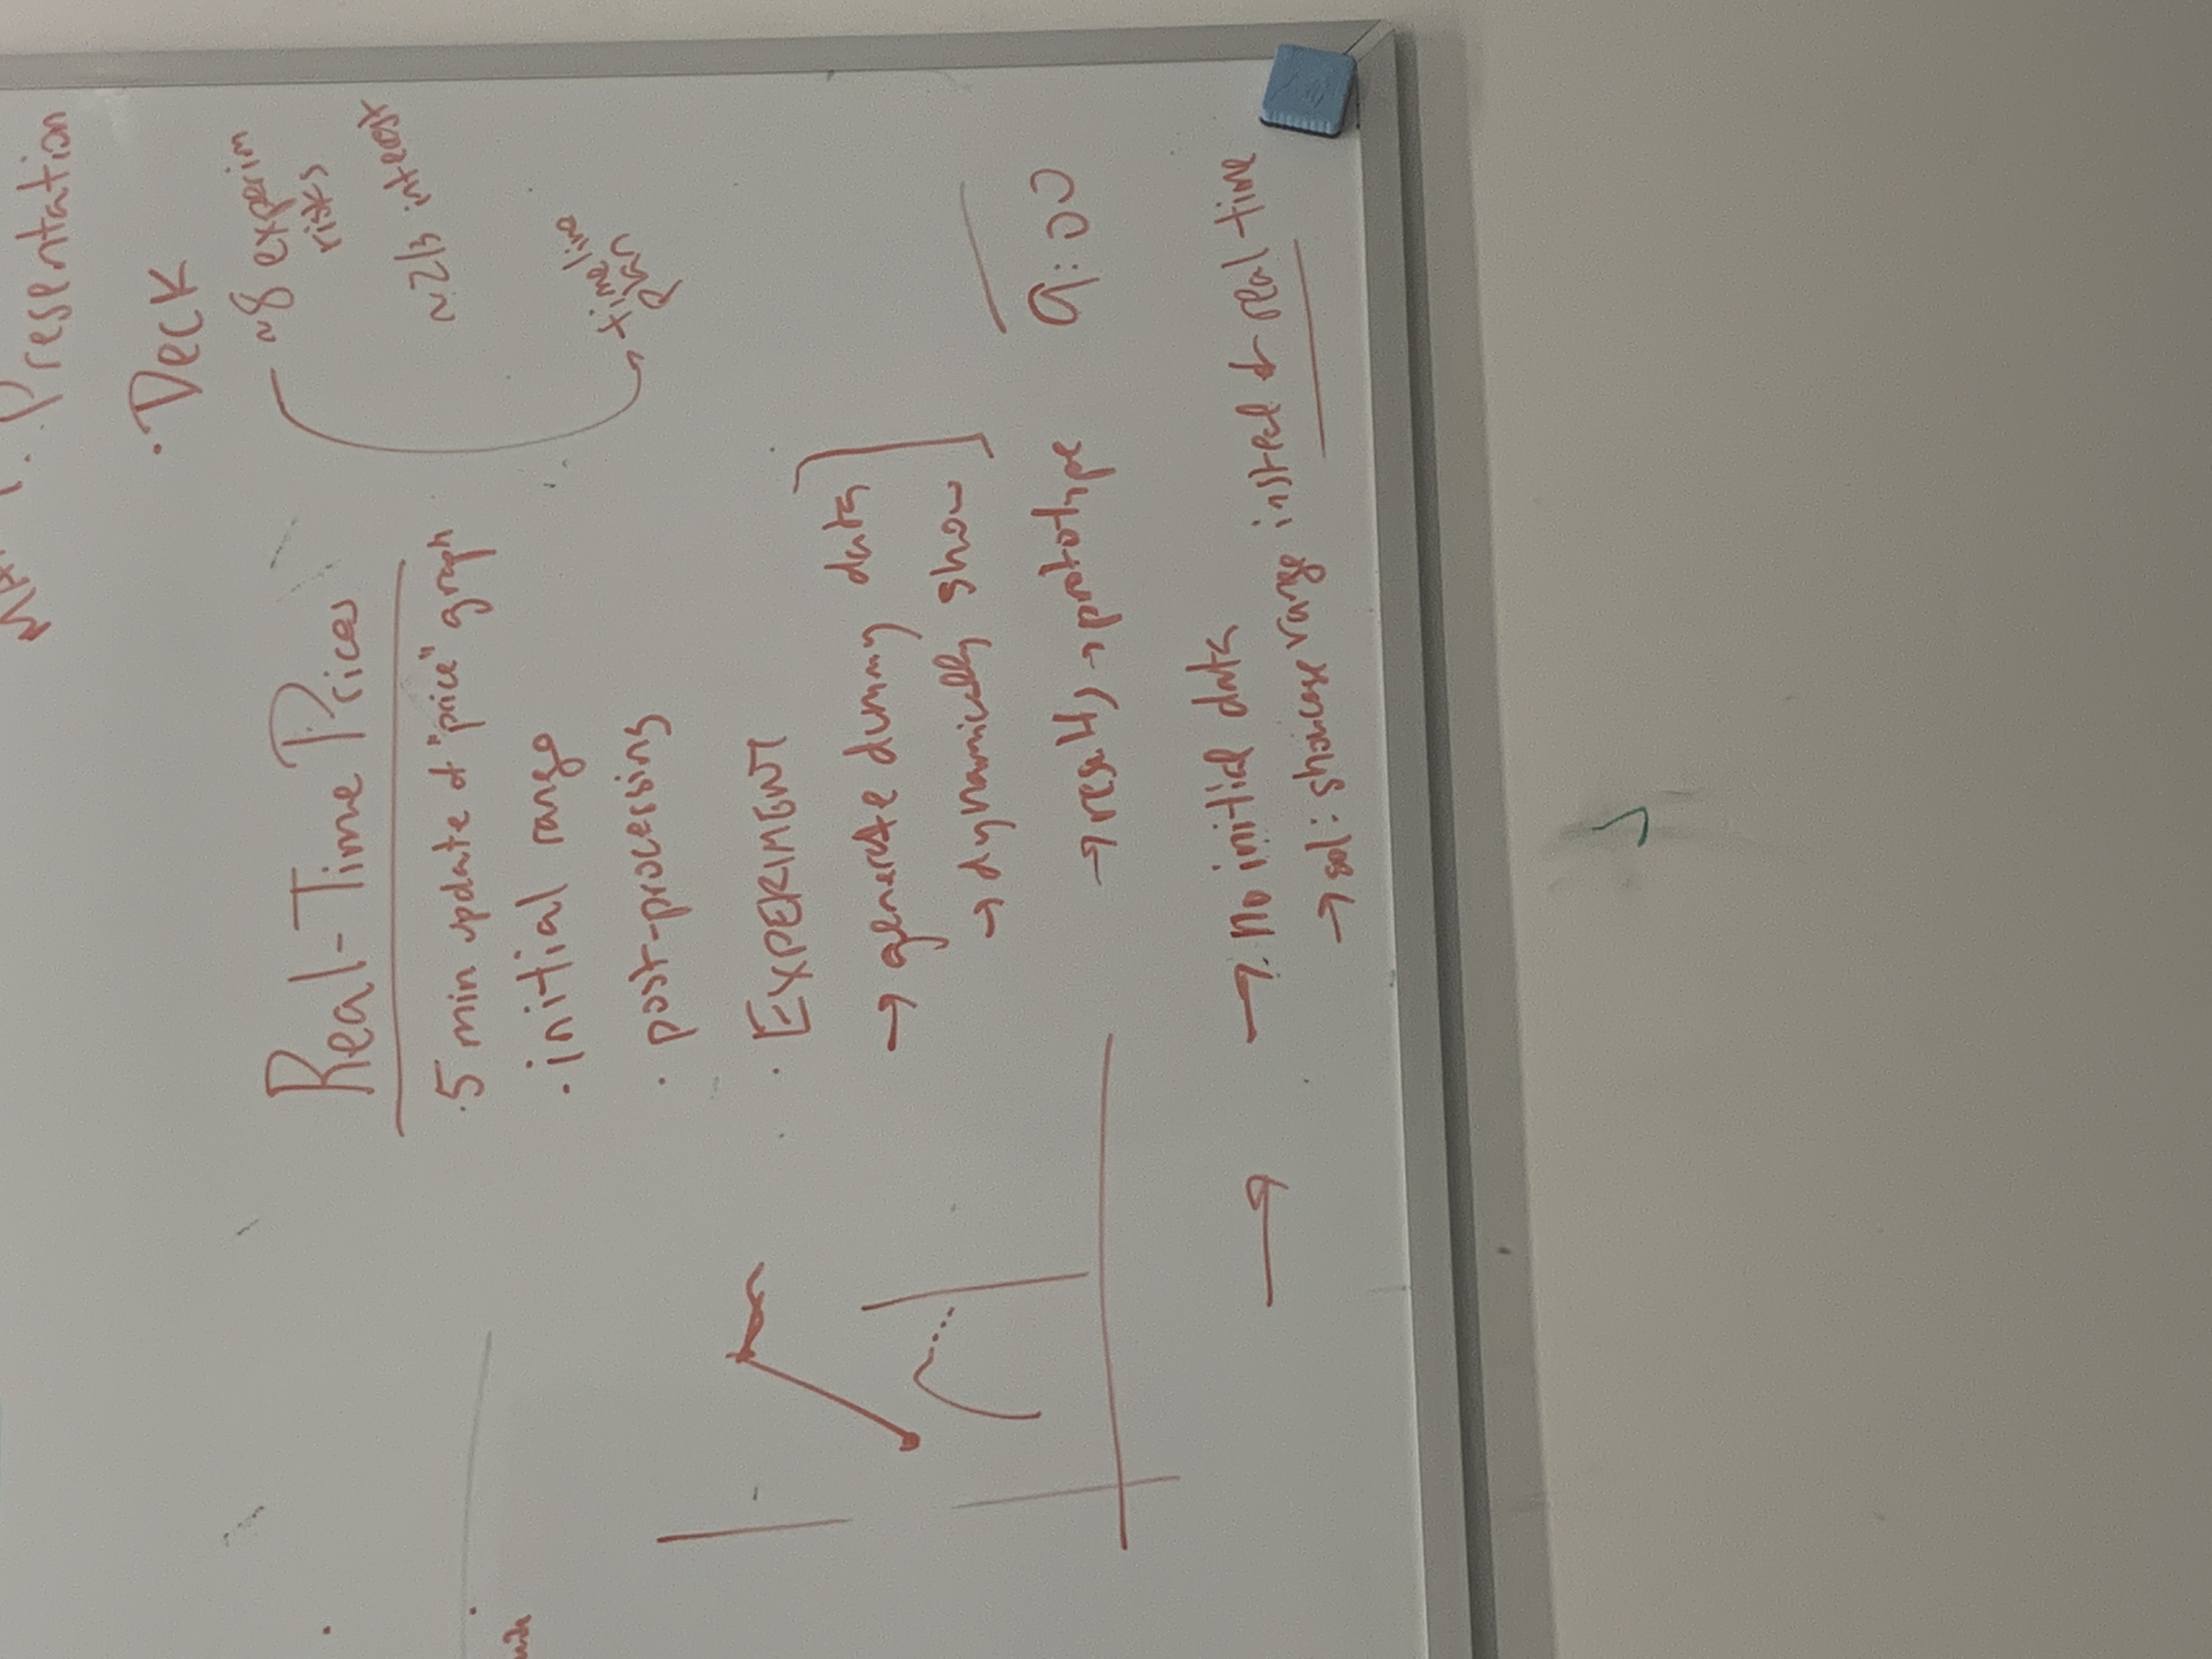 Presentation
· Deck
~8 experim
risks
~2/3 interest
timeline
plan
Real-Time Prices
· 5 min update of "price" graph
· initial range
· post-processing
· EXPERIMENT
→ generate dummy data
→ dynamically show
→ results → prototype
9:00
→ no initial data
→ sol: showcase range instead of real time